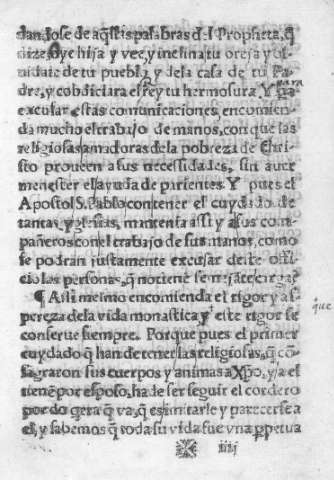 dandose de aq̃stas palabras del Propheta, q̃
dize, Oye hija y vee, y inclina tu oreja y ol
uidate de tu pueblo y dela casa de tu Pa
dre, y cobdiciara el rey tu hermosura. Y para
excusar estas comunicaciones, encomien
da mucho el trabajo de manos, con que las
religiosas amadoras dela pobreza de Chri
sto proueen a sus necessidades, sin auer
menester el ayuda de parientes. Y pues el
Apostol S. Pablo con tener el cuydado de
tantas yglesias, mantenia assi y a sus com
pañeros con el trabajo de sus manos, como
se podran justamente excusar deste offi
cio las personas, q̃ no tiene semejãte carga?
¶ Assi mesmo encomienda el rigor y as
pereza dela vida monastica y este rigor se
que
conserue siempre. Porque pues el primer
cuydado q̃ han de tener las religiosas, q̃ cõ
sagraron sus cuerpos y animas a Xp̃o, y a el
tienẽ por esposo, ha de ser seguir el cordero
por do q̃era q̃ va, q̃ es imitarle y parecerse a
el, y sabemos q̃ toda su vida fue vna perpetua
iiij